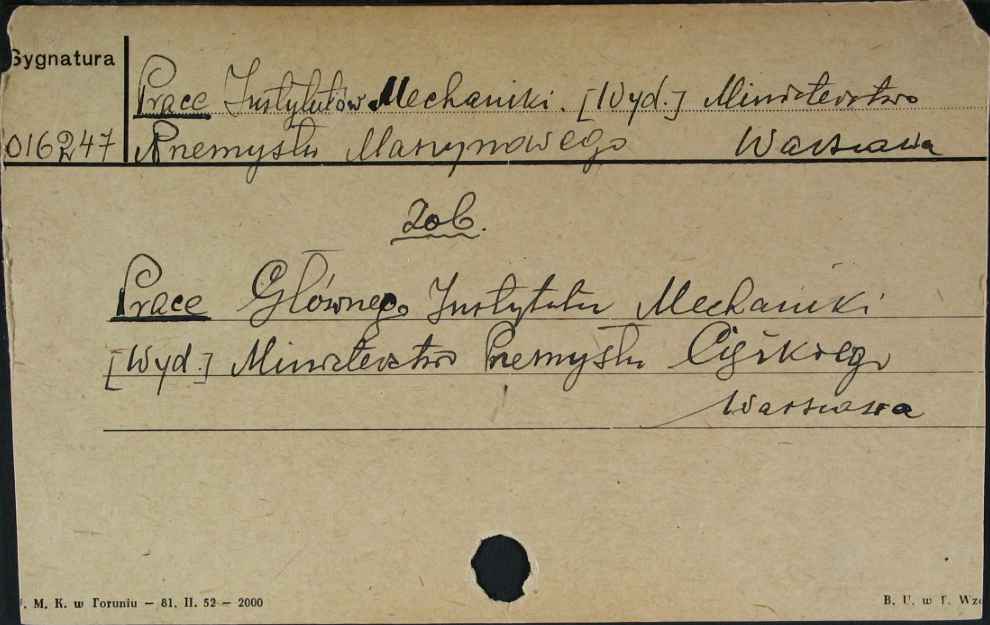 Sygnatura
Prace Instytutów Mechaniki. [Wyd.] Ministerstwo
016247 Przemysłu Maszynowego Warszawa
Zob.
Prace Głównego Instytutu Mechaniki
[Wyd.] Ministerstwo Przemysłu Ciężkiego
Warszawa
. M. K. w Toruniu — 81. II. 52 — 2000
B. U. w T. Wzó